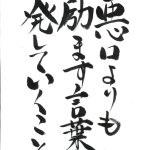 悪口よりも
励ます言葉
発していくこ